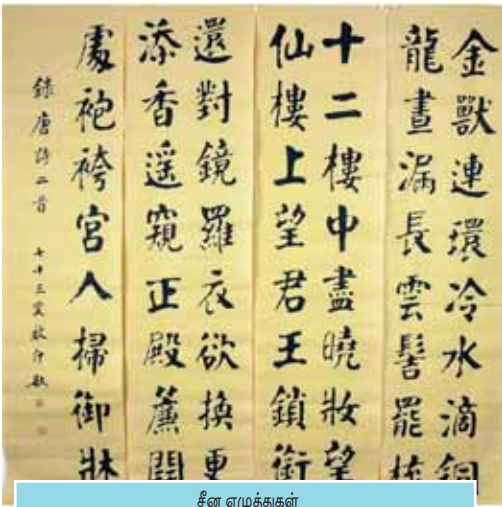 金獸連環冷水滴銅
龍晝漏長雲髻罷梳
十二樓中盡曉妝望
仙樓上望君王鎖銜
還對鏡羅衣欲換更
添香遥窺正殿簾開
處袍袴宮人掃御牀
錄唐詩二首 七十三叟
சீன எழுத்துகள்